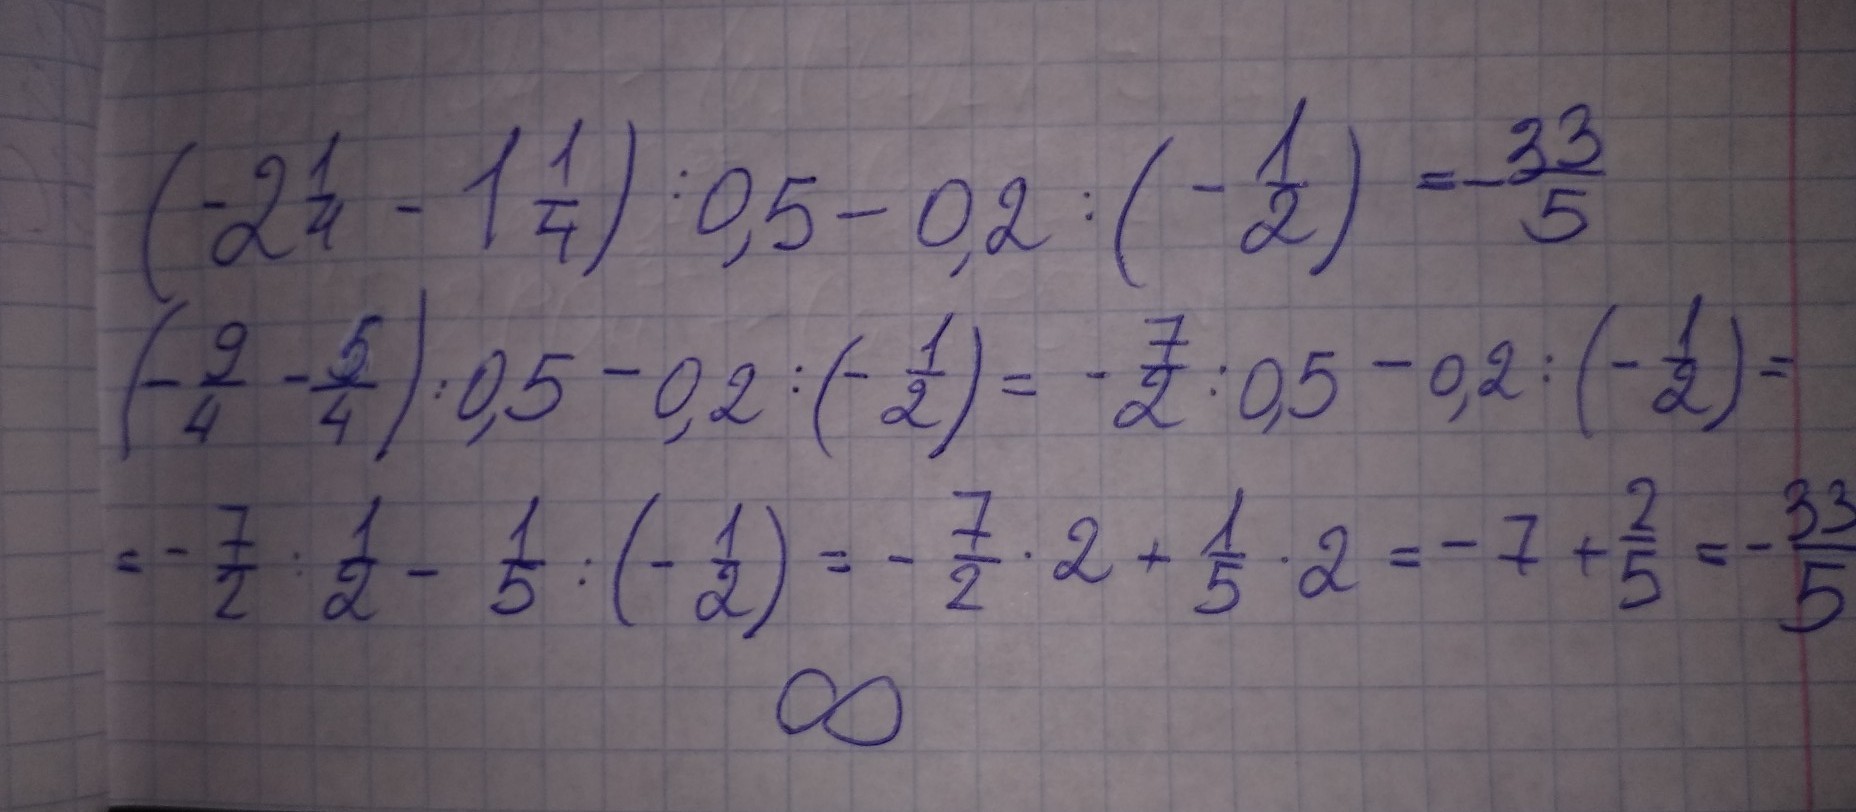 (-2 1/4 - 1 1/4) : 0,5 - 0,2 : (- 1/2) = - 33/5
(- 9/4 - 5/4) : 0,5 - 0,2 : (- 1/2) = - 7/2 : 0,5 - 0,2 : (- 1/2) =
= - 7/2 : 1/2 - 1/5 : (- 1/2) = - 7/2 · 2 + 1/5 · 2 = - 7 + 2/5 = - 33/5
∞